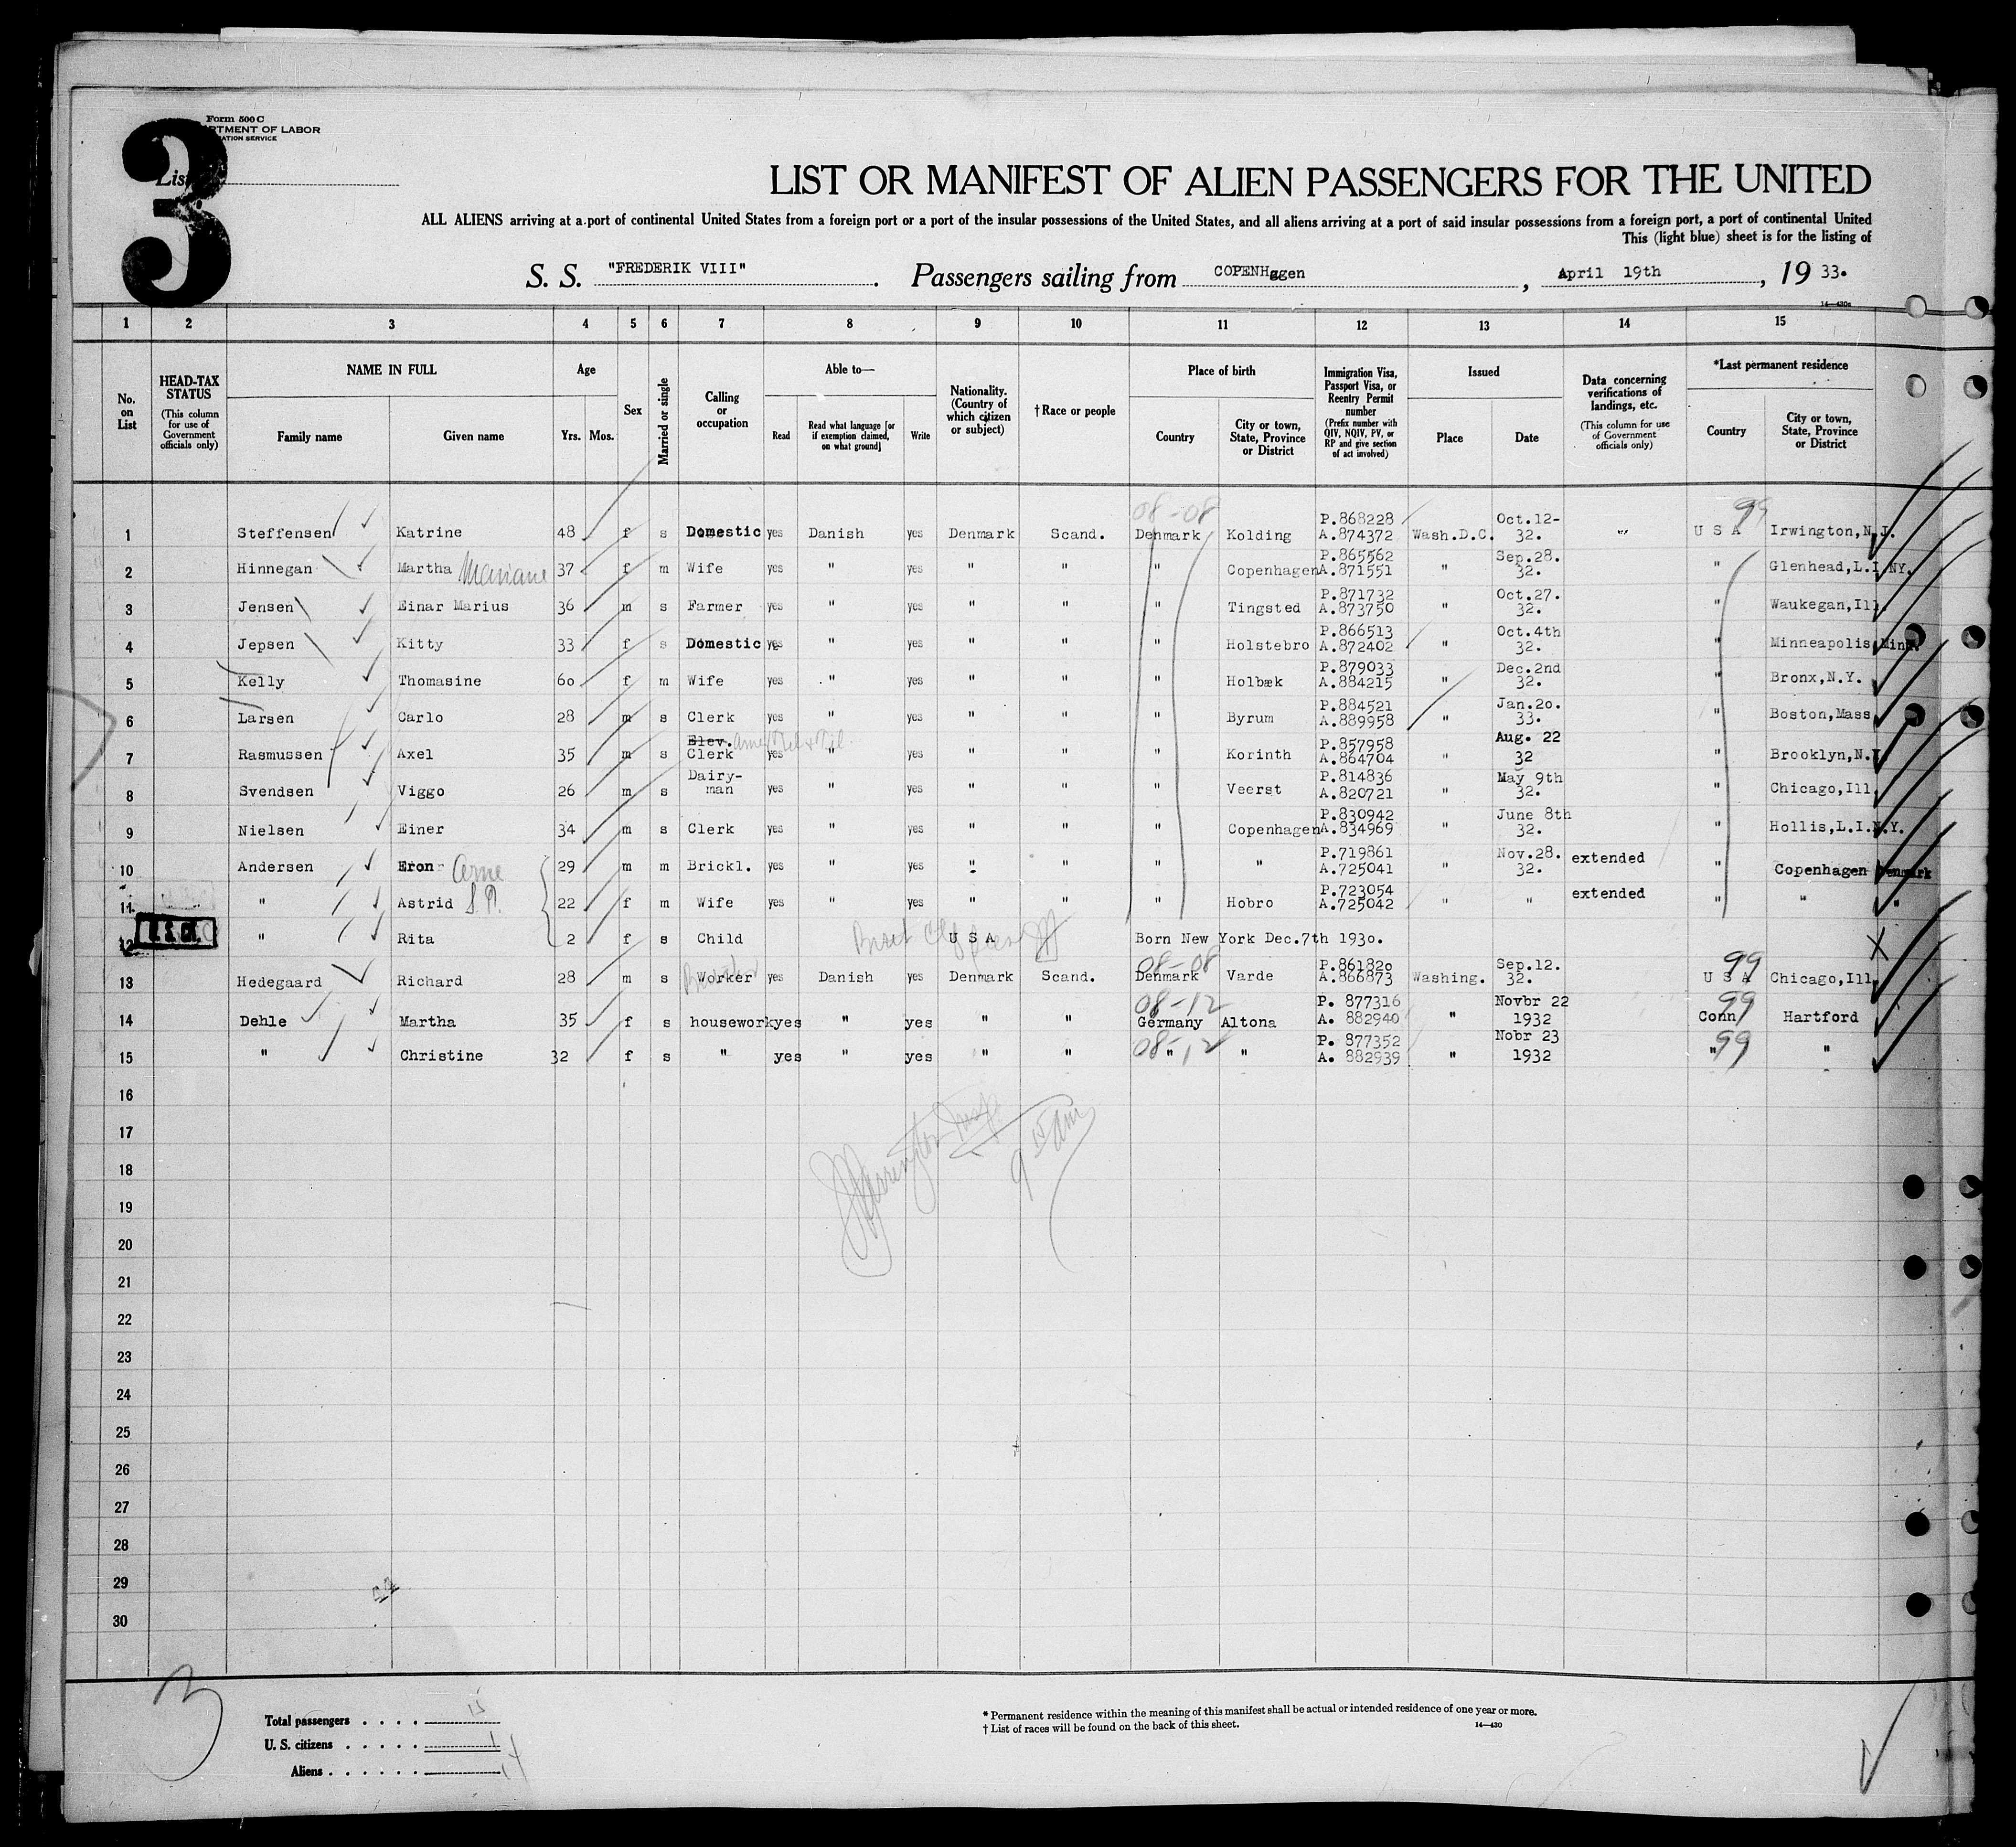 3
Form 500 C
RTMENT OF LABOR
ATION SERVICE
List
LIST OR MANIFEST OF ALIEN PASSENGERS FOR THE UNITED
ALL ALIENS arriving at a port of continental United States from a foreign port or a port of the insular possessions of the United States, and all aliens arriving at a port of said insular possessions from a foreign port, a port of continental United
This (light blue) sheet is for the listing of
S. S. "FREDERIK VIII". Passengers sailing from COPENHagen, April 19th, 19 33.
14—430c
1 2 3 4 5 6 7 8 9 10 11 12 13 14 15
No. on List
HEAD-TAX STATUS (This column for use of Government officials only)
NAME IN FULL Family name Given name
Age Yrs. Mos.
Sex
Married or single
Calling or occupation
Able to— Read Read what language [or if exemption claimed, on what ground] Write
Nationality. (Country of which citizen or subject)
† Race or people
Place of birth Country City or town, State, Province or District
Immigration Visa, Passport Visa, or Reentry Permit number (Prefix number with QIV, NQIV, PV, or RP and give section of act involved)
Issued Place Date
Data concerning verifications of landings, etc. (This column for use of Government officials only)
*Last permanent residence Country City or town, State, Province or District
08-08 99
1 Steffensen Katrine 48 f s Domestic yes Danish yes Denmark Scand. Denmark Kolding P.868228 A.874372 Wash.D.C. Oct.12- 32. " U S A Irwington,N.J.
2 Hinnegan Martha Mariane 37 f m Wife yes " yes " " " Copenhagen P.865562 A.871551 " Sep.28. 32. " Glenhead,L.I.NY.
3 Jensen Einar Marius 36 m s Farmer yes " yes " " " Tingsted P.871732 A.873750 " Oct.27. 32. " Waukegan,Ill.
4 Jepsen Kitty 33 f s Domestic yes " yes " " " Holstebro P.866513 A.872402 " Oct.4th 32. " Minneapolis,Minn.
5 Kelly Thomasine 6o f m Wife yes " yes " " " Holbæk P.879033 A.884215 " Dec.2nd 32. " Bronx,N.Y.
6 Larsen Carlo 28 m s Clerk yes " yes " " " Byrum P.884521 A.889958 " Jan.2o. 33. " Boston,Mass
7 Rasmussen Axel 35 m s Elev. Clerk yes " yes " " " Korinth P.857958 A.864704 " Aug. 22 32 " Brooklyn,N.Y.
8 Svendsen Viggo 26 m s Dairy- man yes " yes " " " Veerst P.814836 A.820721 " May 9th 32. " Chicago,Ill.
9 Nielsen Einer 34 m s Clerk yes " yes " " " Copenhagen P.830942 A.834969 " June 8th 32. " Hollis,L.I.N.Y.
10 Andersen Eron Arne 29 m m Brickl. yes " yes " " " " P.719861 A.725041 " Nov.28. 32. extended " Copenhagen Denmark
11 " Astrid S.P. 22 f m Wife yes " yes " " " Hobro P.723054 A.725042 " " extended " " "
12 " Rita 2 f s Child U S A Born New York Dec.7th 193o.
08-08 99
13 Hedegaard Richard 28 m s Worker yes Danish yes Denmark Scand. Denmark Varde P.86182o A.866873 Washing. Sep.12. 32. U S A Chicago,Ill.
08-12 99
14 Dehle Martha 35 f s housework yes " yes " " Germany Altona P. 877316 A. 882940 " Novbr 22 1932 Conn Hartford
08-12 99
15 " Christine 32 f s " yes " yes " " " " P. 877352 A. 882939 " Nobr 23 1932 " "
16
17
18
19
20
21
22
23
24
25
26
27
28
29
30
3
Total passengers . . . . 15
U. S. citizens . . . . . 1
Aliens . . . . . . 14
* Permanent residence within the meaning of this manifest shall be actual or intended residence of one year or more.
† List of races will be found on the back of this sheet.
14—430